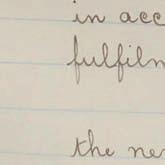 in acc
fulfilm
the ne